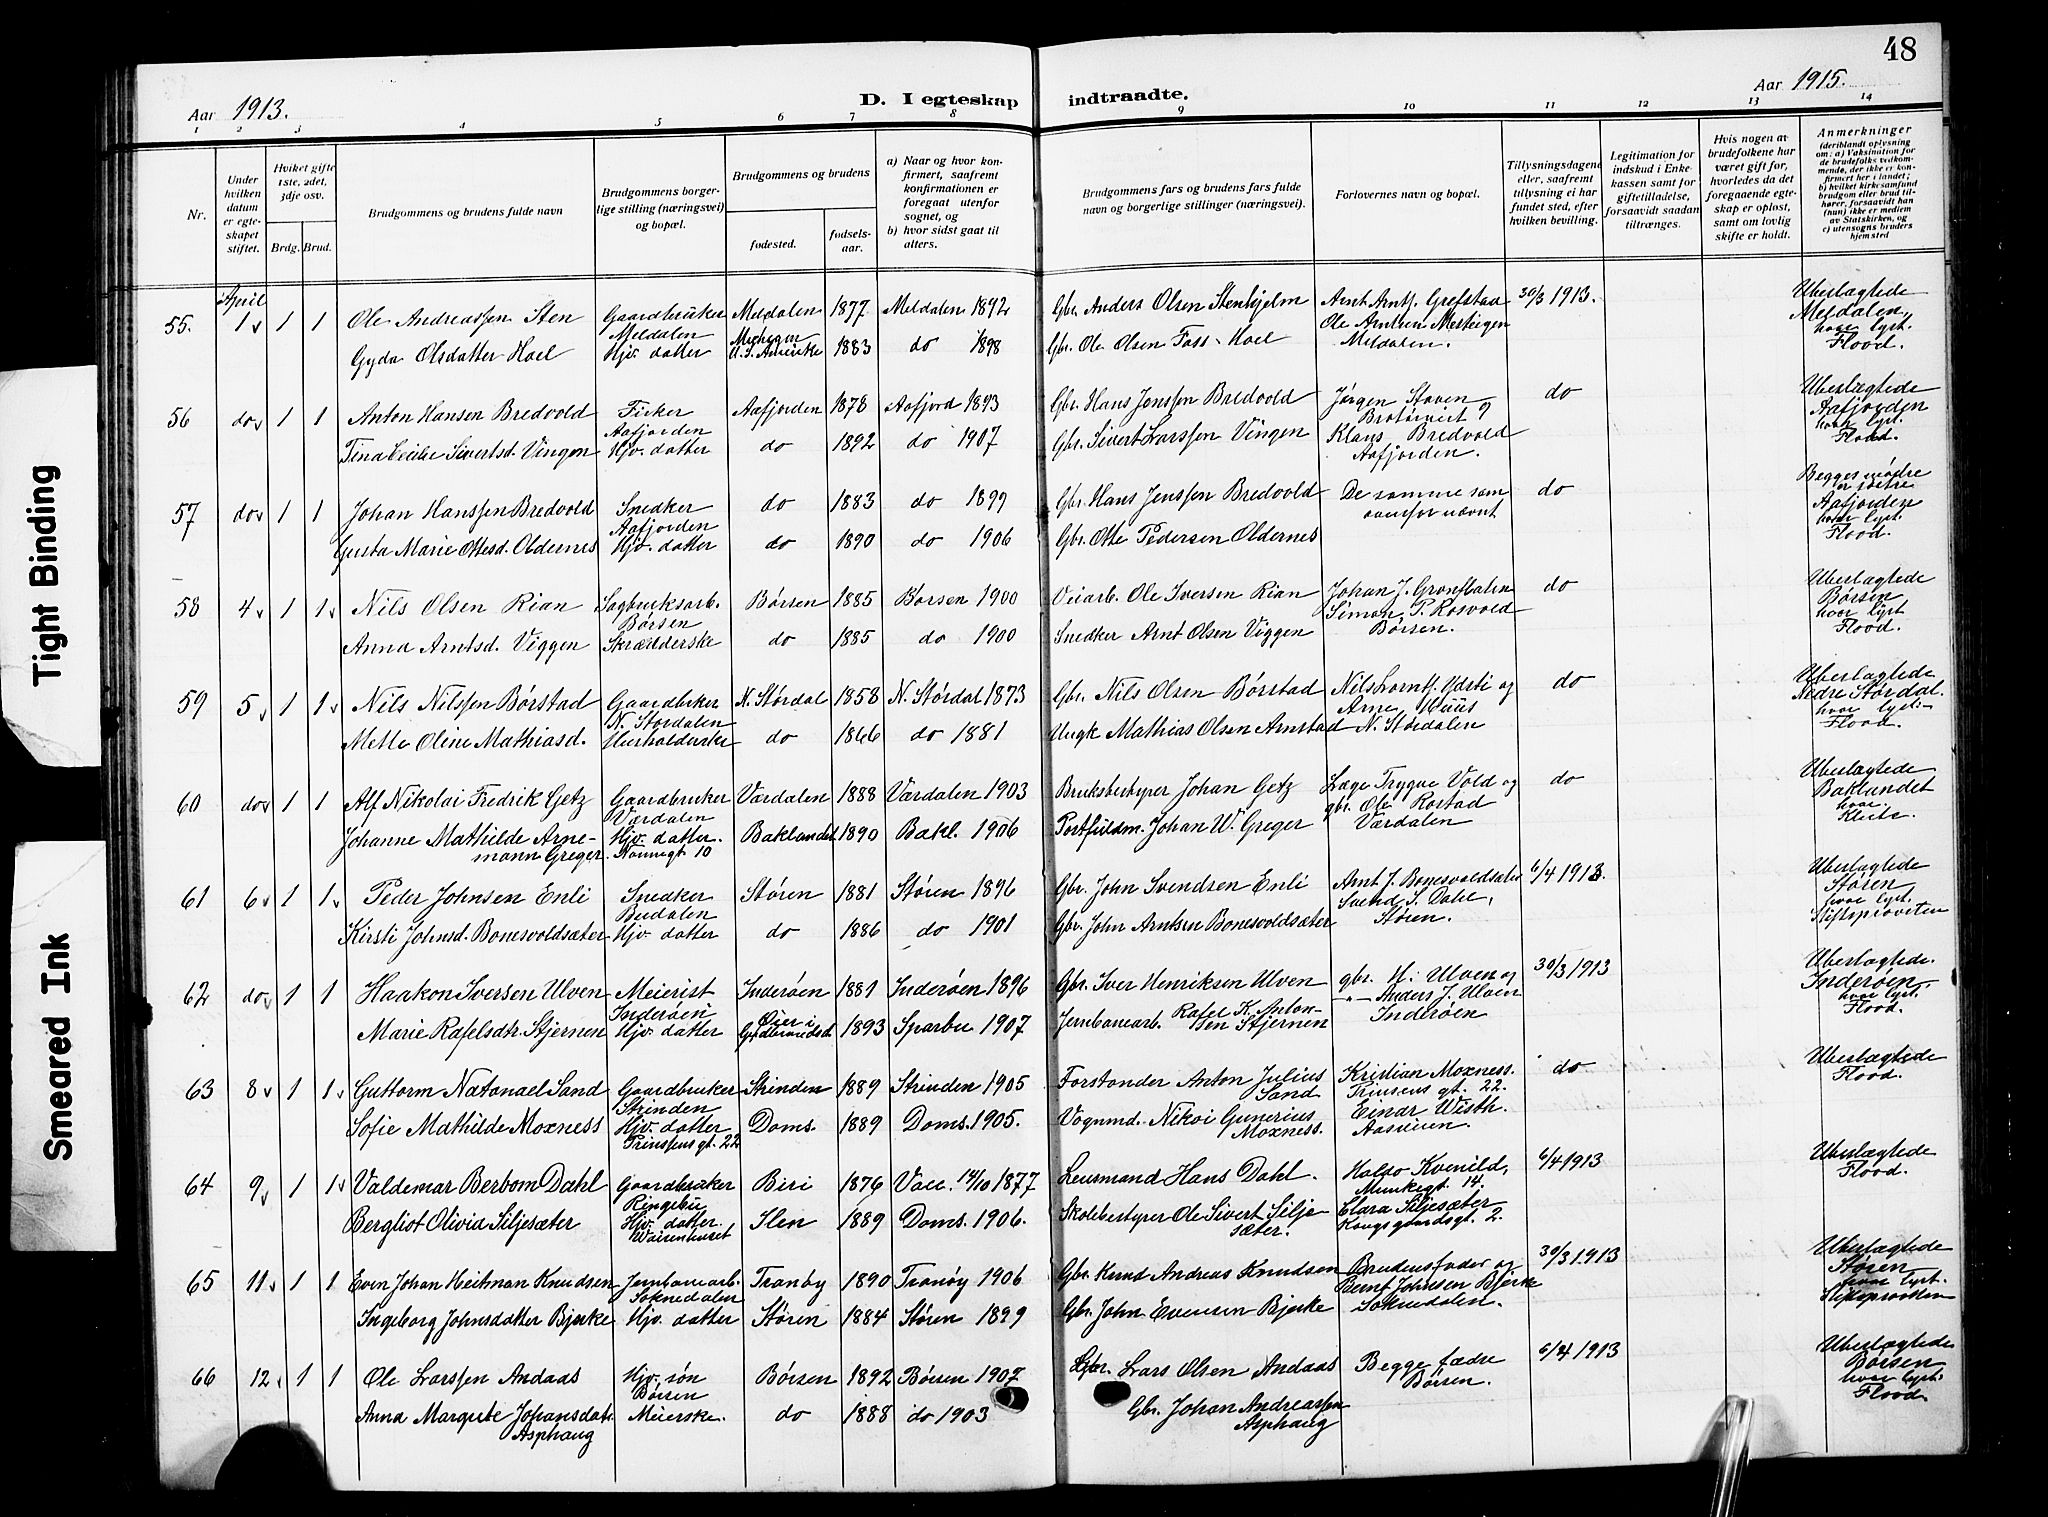 48
Aar 1913.
D. I egteskap indtraadte.
Aar 1915.
1 2 3 4 5 6 7 8 9 10 11 12 13 14
Nr.
Under hvilken datum er egteskapet stiftet.
Hvilket gifte 1ste, 2det, 3dje osv.
Brdg. Brud.
Brudgommens og brudens fulde navn
Brudgommens borgerlige stilling (næringsvei) og bopæl.
Brudgommens og brudens
fødested. fødselsaar.
a) Naar og hvor konfirmert, saafremt konfirmationen er foregaat utenfor sognet, og
b) hvor sidst gaat til alters.
Brudgommens fars og brudens fars fulde navn og borgerlige stillinger (næringsvei).
Forlovernes navn og bopæl.
Tillysningsdagene eller, saafremt tillysning ei har fundet sted, efter hvilken bevilling.
Legitimation for indskud i Enkekassen samt for giftetilladelse, forsaavidt saadan tiltrænges.
Hvis nogen av brudefolkene har været gift før, hvorledes da det foregaaende egteskap er opløst, samt om lovlig skifte er holdt.
Anmerkninger (deriblandt oplysning om: a) Vaksination for de brudefolks vedkommende, der ikke er konfirmert her i landet; b) hvilket kirkesamfund brudgom eller brud tilhører, forsaavidt han (hun) ikke er medlem av Statskirken, og c) utensogns bruders hjemsted
April
55. 1 1 1 Ole Andreassen Sten Gaardbruker Meldalen Meldalen 1877 Meldalen 1892 Gbr. Anders Olsen Stenhjelm Arnt Arntf. Grefstad 30/3 1913. Ubeslægtede Meldalen, hvor lyst. Flood.
Gyda Olsdatter Hoel Hjv. datter Michigan U.S. Amerika 1883 do 1898 Gbr. Ole Olsen Foss-Hoel Ole Arntsen Mesteigen Meldalen.
56 do 1 1 Anton Hansen Bredvold Fisker Aafjorden Aafjorden 1878 Aafjord 1893 Gbr. Hans Jenssen Bredvold Jørgen Stoven Brotorvet 9 do Ubeslægtede Aafjorden hvor lyst. Flood.
Tina Cecilie Sivertsd. Vingen Hjv. datter do 1892 do 1907 Gbr. Sivert Larssen Vingen Klaus Bredvold Aafjorden.
57 do 1 1 Johan Hanssen Bredvold Snedker Aafjorden do 1883 do 1899 Gbr. Hans Jenssen Bredvold De samme som ovenfor nævnt do Begges mødre er søstre Aafjorden hvor lyst. Flood.
Gusta Marie Ottesd. Oldernes Hjv. datter do 1890 do 1906 Gbr. Otte Pedersen Oldernes
58 4 1 1 Nils Olsen Rian Sagbruksarb. Børsen Børsen 1885 Børsen 1900 Veiarb. Ole Iversen Rian Johan J. do Ubeslægtede Børsen hvor lyst Flood.
Anna Arntsd. Viggen Skrædderske do 1885 do 1900 Snedker Arnt Olsen Viggen Simon P. Rosvold Børsen.
59 5 1 1 Nils Nilssen Børstad Gaardbruker N. Stordalen N. Stördal 1858 N. Stördal 1873 Gbr. Nils Olsen Börstad Nils Ydsti og do Ubeslægtede Nedre Stördal. hvor lyst. Flood.
Mette Oline Mathiasd. Husholderske do 1866 do 1881 Ungk Mathias Olsen Arnstad Arne Huus N. Stördalen
60 do 1 1 Alf Nikolai Fredrik Getz Gaardbruker Værdalen Værdalen 1888 Værdalen 1903 Bruksbestyrer Johan Getz Læge Trygve Vold og do Ubeslægtede Baklandet hvor.
Johanne Mathilde Arnemann Greger Hjv. datter. Nonnegt. 10 Baklandet 1890 Bakl. 1906 Postfuldm. Johan W. Greger gbr. Ole Rostad Værdalen
61 6 1 1 Peder Johnsen Enli Snedker Budalen Støren 1881 Støren 1896 Gbr. John Svendsen Enli Arnt J. Bonesvoldsæter 6/4 1913. Ubeslægtede Støren, hvor lyst. Stiftsprovsten
Kirsti Johnsd. Bonesvoldsæter Hjv. datter do 1886 do 1901 Gbr. John Arntsen Bonesvoldsæter Svend S. Dahl, Støren.
62 do 1 1 Haakon Iversen Ulven Meierist Inderøen Inderøen 1881 Inderøen 1896 Gbr. Iver Henriksen Ulven gbr. H. Ulven og 30/3 1913 Ubeslægtede. Inderøen hvor lyst. Flood.
Marie Rafelsdtr. Stjernen Hjv. datter Øier i Gudbrandsd. 1893 Sparbu 1907 Jernbanearb. Rafel K. Antonsen Stjernen Anders J. Ulven Inderøen
63 8 1 1 Guttorm Natanael Sand Gaardbruker Strinden Strinden 1889 Strinden 1905 Forstander Anton Julius Sand Kristian Moxness. Prinsens gt. 22. do Ubeslægtede Flood.
Sofie Mathilde Moxness Hjv. datter Prinsens gt. 22 Doms. 1889 Doms. 1905. Vognmd. Nikoi Gunerius Moxness. Einar Wisth. Aasveien.
64 9 1 1 Valdemar Berbom Dahl Gaardbruker Ringebu Biri 1876 Vacc. 14/10 1877 Lensmand Hans Dahl. Halvo Kvenild, Munkegt. 14. 6/4 1913 Ubeslægtede Flood.
Bergliot Olivia Siljesæter Hjv. datter. Waisenhuset Ilen 1889 Doms. 1906. Skolebestyrer Ole Sivert Siljesæter. Clara Siljesæter Kongsgaardsgt. 2.
65 11 1 1 Even Johan Heitman Knudsen Jernbanearb. Soknedalen Tranøy 1890 Tranøy 1906 Gbr. Knud Andreas Knudsen Brudens fader og 30/3 1913 Ubeslægtede Støren hvor lyst. Stiftsprovsten
Ingeborg Johnsdatter Bjerke Hjv. datter Støren 1884 Støren 1899 Gbr. John Evensen Bjerke Bernt Johnsen Bjerke Soknedalen.
66 12 1 1 Ole Larssen Andaas Hjv. søn Børsen Børsen 1892 Børsen 1907 Gbr. Lars Olsen Andaas Begge fædre Børsen. 6/4 1913 Ubeslægtede Børsen hvor lyst. Flood.
Anna Margrete Johansdatr. Asphaug Meierske. do 1888 do 1903 Gbr. Johan Andreassen Asphaug
Tight Binding
Smeared Ink